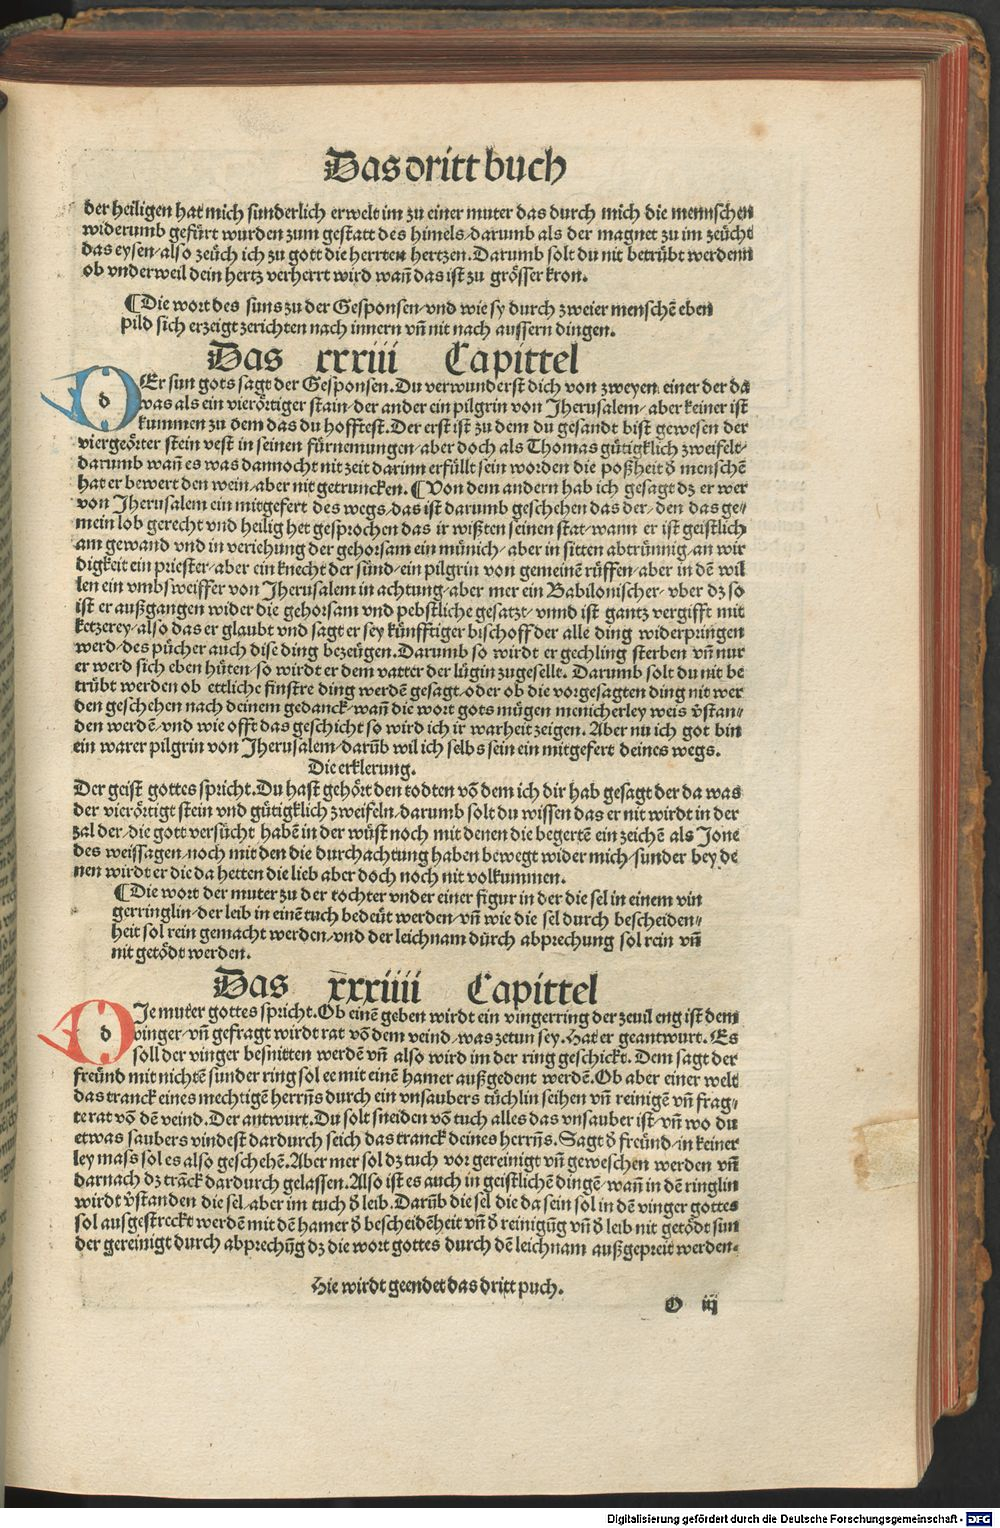 Das dritt buch
der heiligen hat mich sunderlich erwelt im zu einer muter das durch mich die mennschen
widerumb gefürt wurden zum gestatt des himels/darumb als der magnet zu im zeücht
das eysen/also zeüch ich zu gott die herrten hertzen. Darumb solt du nit betrübt werdenn
ob vnderweil dein hertz verherrt wird wañ das ist zu grösser kron.
¶Die wort des suns zu der Gesponsen/vnd wie sy durch zweier menschē eben
pild sich erzeigt zerichten nach innern vñ nit nach aussern dingen.
Das xxxiii Capittel
dEr sun gots sagt der Gesponsen. Du verwunderst dich von zweyen einer der da
was als ein vierörtiger stain/der ander ein pilgrin von Jherusalem/aber keiner ist
kummen zu dem das du hofftest. Der erst ist zu dem du gesandt bist gewesen der
viergeörter stein vest in seinen fürnemungen/aber doch als Thomas gütigklich zweifelt/
darumb wañ es was dannocht nit zeit darinn erfüllt sein worden die poßheit d̄ menschē
hat er bewert den wein/aber nit getruncken. ¶Von dem andern hab ich gesagt dz er wer
von Jherusalem ein mitgefert des wegs/das ist darumb geschehen das der/den das ge/
mein lob gerecht vnd heilig het gesprochen das ir wißten seinen stat/wann er ist geistlich
am gewand vnd in veriehung der gehorsam ein münich/aber in sitten abtrünnig/an wir
digkeit ein priester/aber ein knecht der sünd/ein pilgrin von gemeinē rüffen/aber in dē wil
len ein vmbsweiffer von Jherusalem in achtung/aber mer ein Babilonischer/vber dz so
ist er außgangen wider die gehorsam vnd pebstliche gesatzt/vnnd ist gantz vergifft mit
ketzerey/also das er glaubt vnd sagt er sey künfftiger bischoff der alle ding widerpringen
werd/des pücher auch dise ding bezeügen. Darumb so wirdt er gechling sterben vñ nur
er werd sich eben hüten/so wirdt er dem vatter der lügin zugesellt. Darumb solt du nit be
trübt werden ob ettliche finstre ding werdē gesagt/oder ob die vorgesagten ding nit wer
den geschehen nach deinem gedanck/wañ die wort gots mügen menicherley weis v̄stan/
den werdē/vnd wie offt das geschicht so wird ich ir warheit zeigen. Aber nu ich got bin
ein warer pilgrin von Jherusalem/darūb wil ich selbs sein ein mitgefert deines wegs.
Die erklerung.
Der geist gottes spricht. Du hast gehört den todten vō dem ich dir hab gesagt der da was
der vierörtigt stein vnd gütigklich zweifeln/darumb solt du wissen das er nit wirdt in der
zal der/die gott versücht habē in der wüst noch mit denen die begertē ein zeichē als Jone
des weissagen/noch mit den die durchachtung haben bewegt wider mich/sunder bey de
nen wirdt er die da hetten die lieb aber doch noch nit volkummen.
¶Die wort der muter zu der tochter vnder einer figur in der die sel in einem vin
gerringlin/der leib in einē tuch bedeüt werden/vñ wie die sel durch bescheiden/
heit sol rein gemacht werden/vnd der leichnam dürch abprechung sol rein vñ
nit getödt werden.
Das xxxiiii Capittel
dIe muter gottes spricht. Ob einē geben wirdt ein vingerring der zeuil eng ist dem
vinger/vñ gefragt wirdt rat vō dem veind/was zetun sey. Hat er geantwurt. Es
soll der vinger besnitten werdē vñ also wird im der ring geschickt. Dem sagt der
freünd mit nichtē sunder ring sol ee mit einē hamer außgedent werdē. Ob aber einer welt
das tranck eines mechtigē herrñs durch ein vnsaubers tüchlin seihen vñ reinigē vñ frag/
te rat vō dē veind. Der antwurt. Du solt sneiden vō tuch alles das vnsauber ist/vñ wo du
etwas saubers vindest dardurch seich das tranck deines herrñs. Sagt d̄ freünd/in keiner
ley mass sol es also geschehē. Aber mer sol dz tuch vor gereinigt vñ geweschen werden vñ
darnach dz trāck dardurch gelassen. Also ist es auch in geistlichē dingē/wañ in dē ringlin
wirdt v̄standen die sel/aber im tuch d̄ leib. Darūb die sel die da sein sol in dē vinger gottes
sol ausgestreckt werdē mit dē hamer d̄ bescheidēheit vñ d̄ reinigūg vñ d̄ leib nit getödt sun
der gereinigt durch abprechūg dz die wort gottes durch dē leichnam außgepreit werden.
Hie wirdt geendet das dritt puch.
O iij
Digitalisierung gefördert durch die Deutsche Forschungsgemeinschaft - DFG